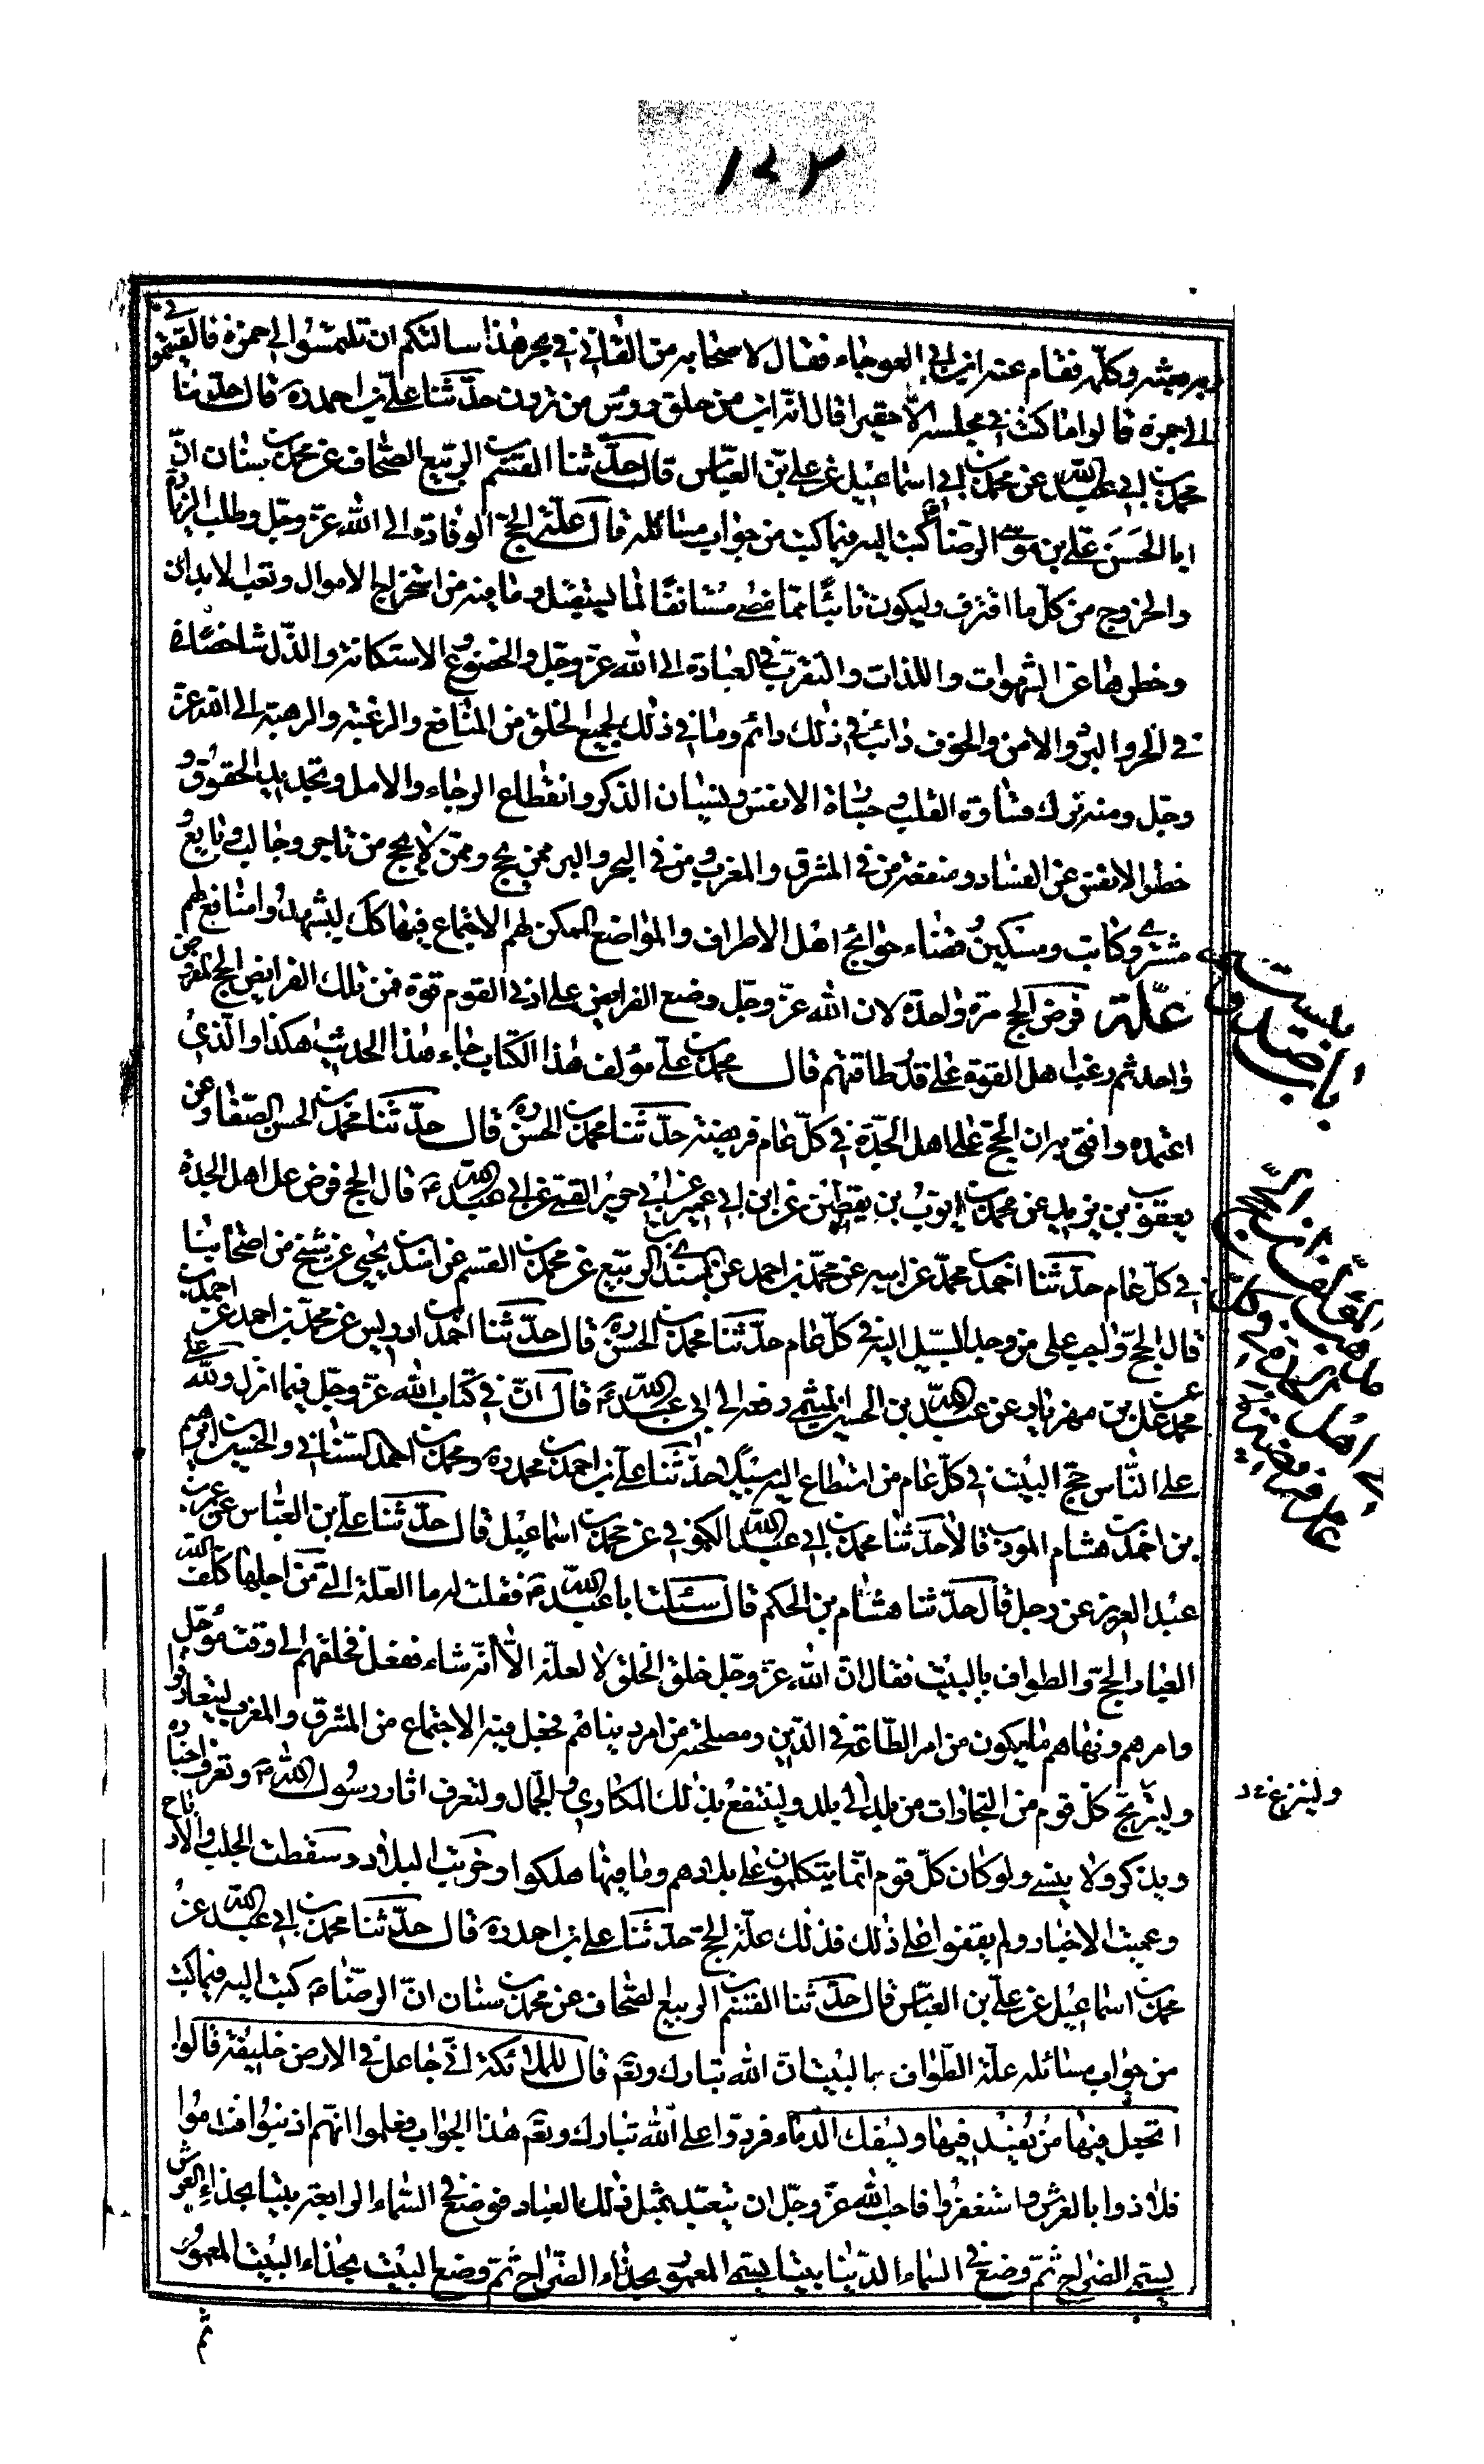 ١٧٢
وبرسمه وكلمه فقام عنه ابن ابى العوجاء فقال لاصحابه من القانى فى بحر هذا سالتكم ان تلتمسوا لى خمرة فالقيتمونى
الى جمرة قالوا ما كنت فى مجلسه الا حقيرا قال انه ابن من حلق رؤس من ترون حدثنا على بن احمد ره قال حدثنا
محمد بن ابى عبد الله عن محمد بن ابى اسماعيل عن على بن العباس قال حدثنا القسم بن الربيع الصحاف عن محمد بن سنان ان
ابا الحسن على بن موسى الرضا ع كتب اليه فيما كتب من جواب مسائله قال علة الحج الوفادة الى الله عز وجل وطلب الزيادة
والخروج من كل ما اقترف وليكون تائبا مما مضى مستانفا لما يستقبل وما فيه من استخراج الاموال وتعب الابدان
وحظرها عن الشهوات واللذات والتقرب فى العبادة الى الله عز وجل والخضوع والاستكانة والذل شاخصا فى
فى الحر والبرد والامن والخوف دائبا فى ذلك دائم وما فى ذلك لجميع الخلق من المنافع والرغبة والرهبة الى الله عز
وجل ومنه ترك قساوة القلب وخساة الانفس ونسيان الذكر وانقطاع الرجاء والامل وتجديد الحقوق و
حظر الانفس عن الفساد ومنفعة من فى المشرق والمغرب ومن فى البحر والبر ممن يحج وممن لا يحج من تاجر وجالب وبايع و
مشترى وكاتب ومسكين وقضاء حوائج اهل الاطراف والمواضع الممكن لهم الاجتماع فيها كل ليشهدوا منافع لهم
علة فرض الحج مرة واحدة لان الله عز وجل وضع الفرايض على ادنى القوم قوة فمن تلك الفرايض الحج المفروض
واحد ثم رغب اهل القوة على قدر طاقتهم قال محمد بن على مؤلف هذا الكتاب جاء هذا الحديث هكذا والذى
اعتمده وافتى به ان الحج على اهل الجدة فى كل عام فريضة حدثنا محمد بن الحسن ره قال حدثنا محمد بن الحسن الصفار عن
يعقوب بن يزيد عن محمد بن ايوب بن يقطين عن ابن ابى عمير عن ابى جرير القمى عن ابى عبد الله ع قال الحج فرض على اهل الجدة
فى كل عام حدثنا احمد بن محمد عن ابيه عن محمد بن احمد عن السندى بن الربيع عن محمد بن القسم عن اسد بن يحيى عن شيخ من اصحابنا
قال الحج واجب على من وجد السبيل اليه فى كل عام حدثنا محمد بن الحسن ره قال حدثنا احمد بن ادريس عن محمد بن احمد عن احمد بن
محمد عن على بن مهزيار عن عبد الله بن الحسين الميثمى رفعه الى ابى عبد الله ع قال ان فى كتاب الله عز وجل فيما انزل ولله على
على الناس حج البيت فى كل عام من استطاع اليه سبيلا حدثنا على بن احمد بن محمد ره ومحمد بن احمد السنانى والحسين بن ابرهيم
بن احمد بن هشام المودب قالا حدثنا محمد بن ابى عبد الله الكوفى عن محمد بن اسماعيل قال حدثنا على بن العباس عن عمر بن
عبد العزيز عن رجل قال حدثنا هشام بن الحكم قال سئلت ابا عبد الله ع فقلت له ما العلة التى من اجلها كلف الله
العباد الحج والطواف بالبيت فقال ان الله عز وجل خلق الخلق لا لعلة الا انه شاء ففعل فخلقهم الى وقت مؤجل
وامرهم ونهاهم ما يكون من امر الطاعة فى الدين ومصلحة من امر دنياهم فجعل فيه الاجتماع من المشرق والمغرب ليتعارفوا
وليتربح كل قوم من التجارات من بلد الى بلد ولينتفع بذلك المكارى والجمال ولتعرف اثار رسول الله ص وتعرف اخباره
ويذكر ولا ينسى ولو كان كل قوم انما يتكلمون على بلادهم وما فيها هلكوا وخربت البلاد وسقطت الجلب والارباح
وعميت الاخبار ولم يقفوا على ذلك فذلك علة الحج حدثنا على بن احمد ره قال حدثنا محمد بن ابى عبد الله عن
محمد بن اسماعيل عن على بن العباس قال حدثنا القسم بن الربيع الصحاف عن محمد بن سنان ان الرضا ع كتب اليه فيما كتب
من جواب مسائله علة الطواف بالبيت ان الله تبارك وتعم قال للملائكة انى جاعل فى الارض خليفة قالوا
اتجعل فيها من يفسد فيها ويسفك الدماء فردوا على الله تبارك وتعم هذا الجواب فعلموا انهم اذنبوا فندموا
فلاذوا بالعرش واستغفروا فاحب الله عز وجل ان يتعبد بمثل ذلك العباد فوضع فى السماء الرابعة بيتا بحذاء العرش
يسمى الضراح ثم وضع فى السماء الدنيا بيتا يسمى المعمور بحذاء الضراح ثم وضع البيت بحذاء البيت المعمور
ثم
ولينزع خ د